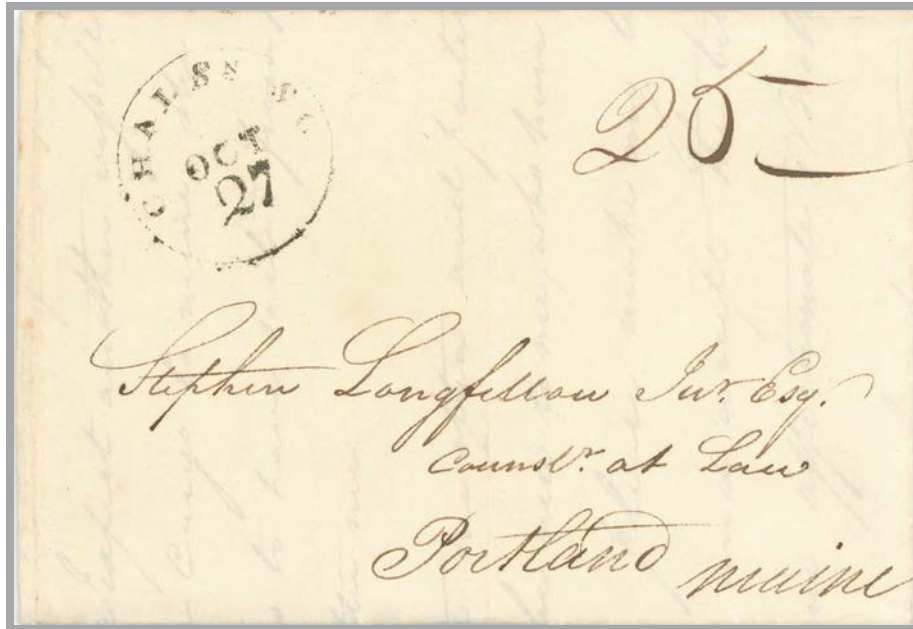 OCT
27
25
Stephen Longfellow Junr. Esq.
Counslr. at Law
Portland Maine